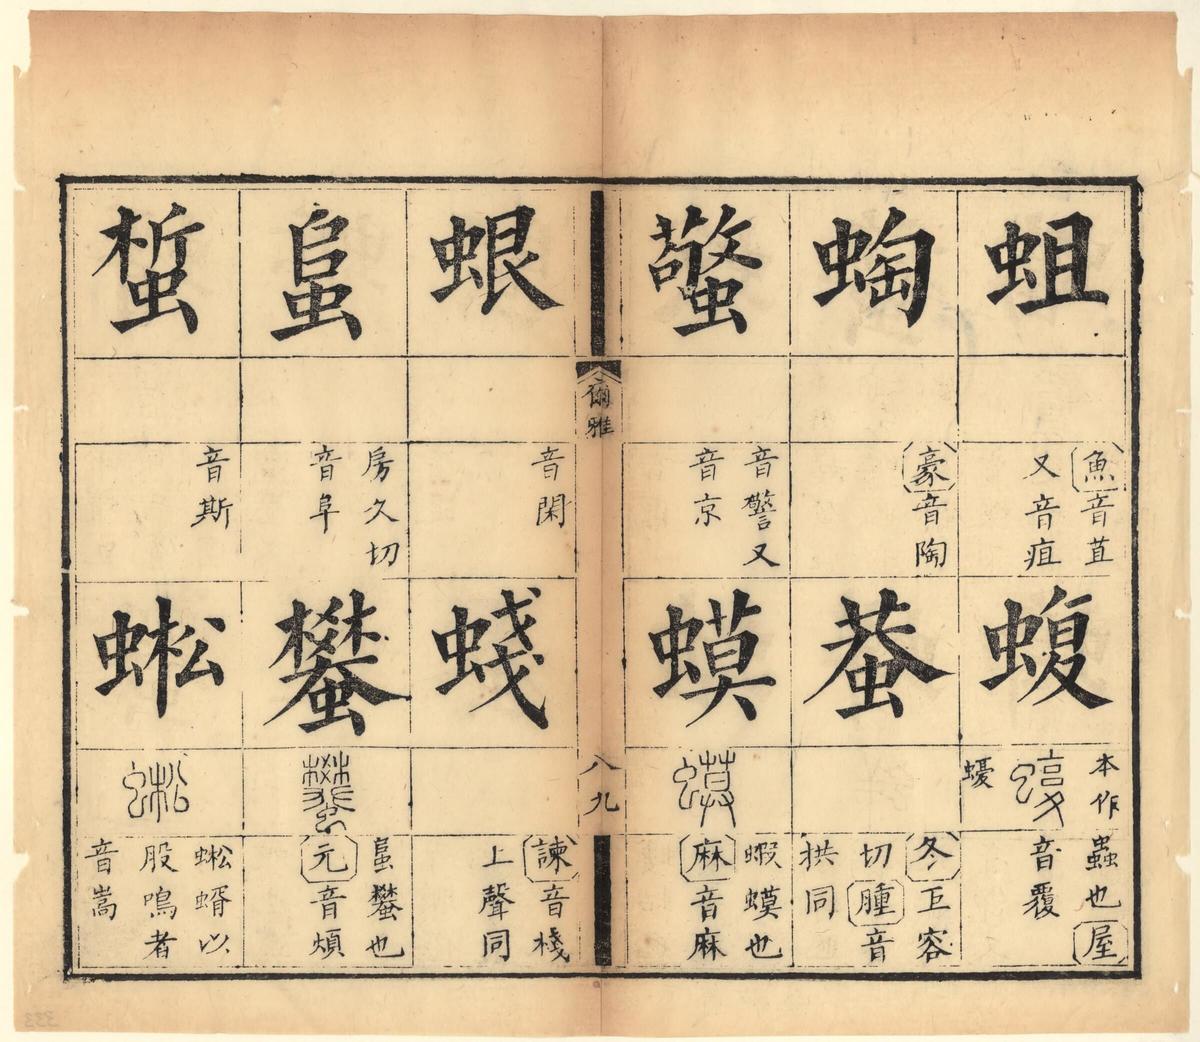 蛆
魚音苴
又音疽
蝮
本作
蝮
蝬
蟲也屋
音覆
蜪
豪音陶
蛬
冬巨容
切腫音
拱同
蟼
音警又
音京
蟆
蟆
蝦蟆也
麻音麻
爾雅
八九
蛝
音閑
虥
諫音棧
上聲同
𧌓
房久切
音阜
蠜
蠜
𧌓蠜也
元音煩
蜤
音斯
蚣
蚣
蜙蝑以
股鳴者
音嵩